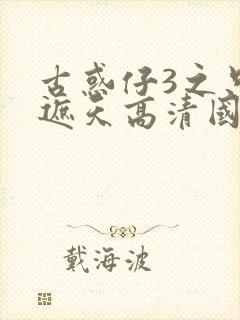 古惑仔3之只
遮天高清國
戴海波